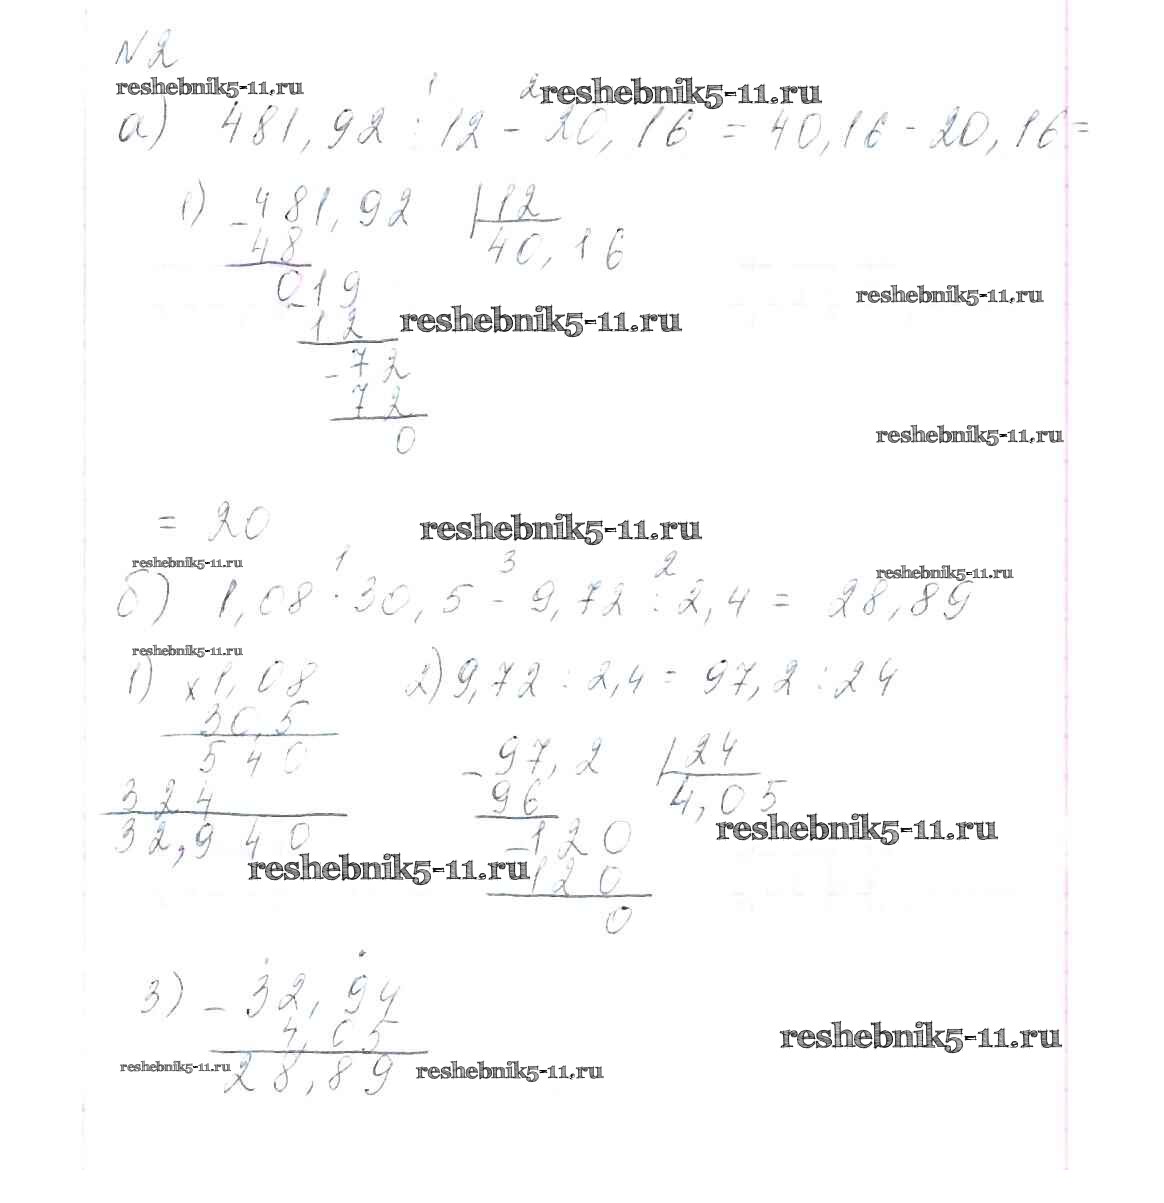 №2
reshebnik5-11.ru
1 2 reshebnik5-11.ru
а) 481,92 : 12 - 20,16 = 40,16 - 20,16 =
1) - 481,92 | 12
48 40,16
0 - 19
reshebnik5-11.ru
12 reshebnik5-11.ru
- 72
72
0
reshebnik5-11.ru
= 20 reshebnik5-11.ru
reshebnik5-11.ru 1 3 2 reshebnik5-11.ru
б) 1,08 · 30,5 - 9,72 : 2,4 = 28,89
reshebnik5-11.ru
1) x 1,08 2) 9,72 : 2,4 = 97,2 : 24
30,5
540 - 97,2 | 24
324 96 4,05
32,940 - 120 reshebnik5-11.ru
reshebnik5-11.ru 120
0
3) - 32,94
4,05 reshebnik5-11.ru
reshebnik5-11.ru 28,89 reshebnik5-11.ru